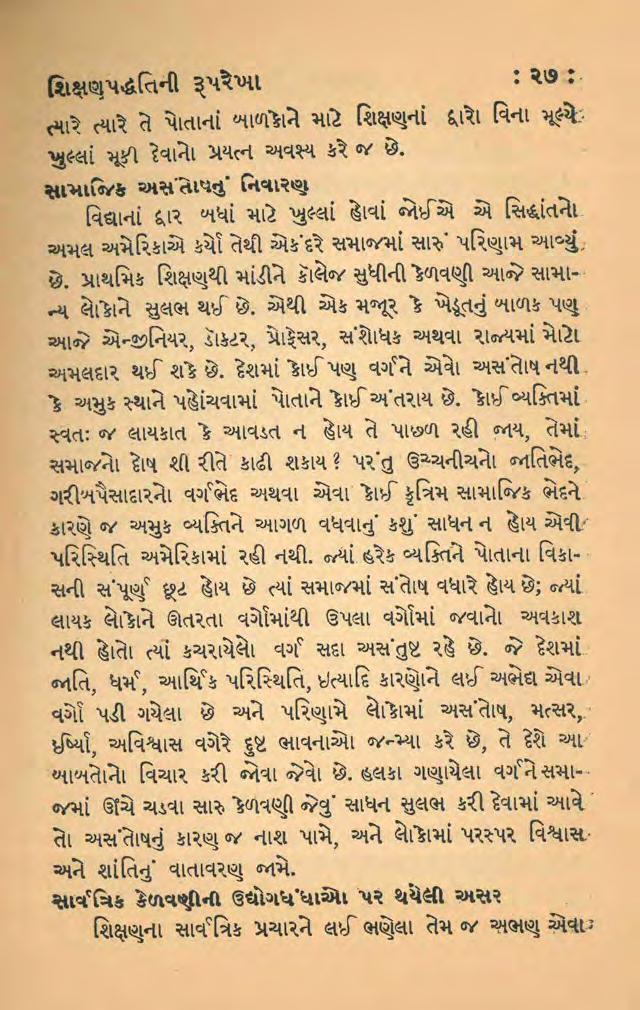 શિક્ષણપદ્ધતિની રૂપરેખા : ૨૭ :
ત્યારે ત્યારે તે પોતાનાં બાળકોને માટે શિક્ષણનાં દ્વારો વિના મૂલ્યે
ખુલ્લાં મૂકી દેવાનો પ્રયત્ન અવશ્ય કરે જ છે.
સામાજિક અસંતોષનું નિવારણ
વિદ્યાનાં દ્વાર બધાં માટે ખુલ્લાં હોવાં જોઈએ એ સિદ્ધાંતનો
અમલ અમેરિકાએ કર્યો તેથી એકંદરે સમાજમાં સારું પરિણામ આવ્યું
છે. પ્રાથમિક શિક્ષણથી માંડીને કૉલેજ સુધીની કેળવણી આજે સામા-
ન્ય લોકોને સુલભ થઈ છે. એથી એક મજૂર કે ખેડૂતનું બાળક પણ
આજે એન્જીનિયર, ડૉક્ટર, પ્રોફેસર, સંશોધક અથવા રાજ્યમાં મોટો
અમલદાર થઈ શકે છે. દેશમાં કોઈ પણ વર્ગને એવો અસંતોષ નથી
કે અમુક સ્થાને પહોંચવામાં પોતાને કોઈ અંતરાય છે. કોઈ વ્યક્તિમાં
સ્વતઃ જ લાયકાત કે આવડત ન હોય તે પાછળ રહી જાય, તેમાં
સમાજનો દોષ શી રીતે કાઢી શકાય? પરંતુ ઉચ્ચનીચનો જાતિભેદ,
ગરીબપૈસાદારનો વર્ગભેદ અથવા એવા કોઈ કૃત્રિમ સામાજિક ભેદને
કારણે જ અમુક વ્યક્તિને આગળ વધવાનું કશું સાધન ન હોય એવી
પરિસ્થિતિ અમેરિકામાં રહી નથી. જ્યાં હરેક વ્યક્તિને પોતાના વિકા-
સની સંપૂર્ણ છૂટ હોય છે ત્યાં સમાજમાં સંતોષ વધારે હોય છે; જ્યાં
લાયક લોકોને ઊતરતા વર્ગોમાંથી ઉપલા વર્ગોમાં જવાનો અવકાશ
નથી હોતો ત્યાં કચરાયેલો વર્ગ સદા અસંતુષ્ટ રહે છે. જે દેશમાં
જાતિ, ધર્મ, આર્થિક પરિસ્થિતિ, ઇત્યાદિ કારણોને લઈ અભેદ્ય એવા
વર્ગો પડી ગયેલા છે અને પરિણામે લોકોમાં અસંતોષ, મત્સર,
ઈર્ષ્યા, અવિશ્વાસ વગેરે દુષ્ટ ભાવનાઓ જન્મ્યા કરે છે, તે દેશે આ
બાબતોનો વિચાર કરી જોવા જેવો છે. હલકા ગણાયેલા વર્ગને સમા-
જમાં ઊંચે ચડવા સારુ કેળવણી જેવું સાધન સુલભ કરી દેવામાં આવે
તો અસંતોષનું કારણ જ નાશ પામે, અને લોકોમાં પરસ્પર વિશ્વાસ
અને શાંતિનું વાતાવરણ જામે.
સાર્વત્રિક કેળવણીની ઉદ્યોગધંધાઓ પર થયેલી અસર
શિક્ષણના સાર્વત્રિક પ્રચારને લઈ ભણેલા તેમ જ અભણ એવા